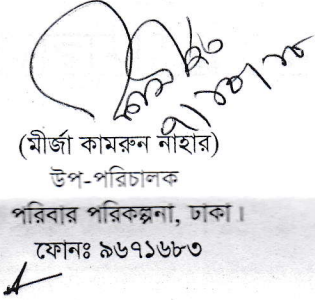 (মীর্জা কামরুন নাহার)
উপ-পরিচালক
পরিবার পরিকল্পনা, ঢাকা।
ফোনঃ ৯৬৭১৬৮৩